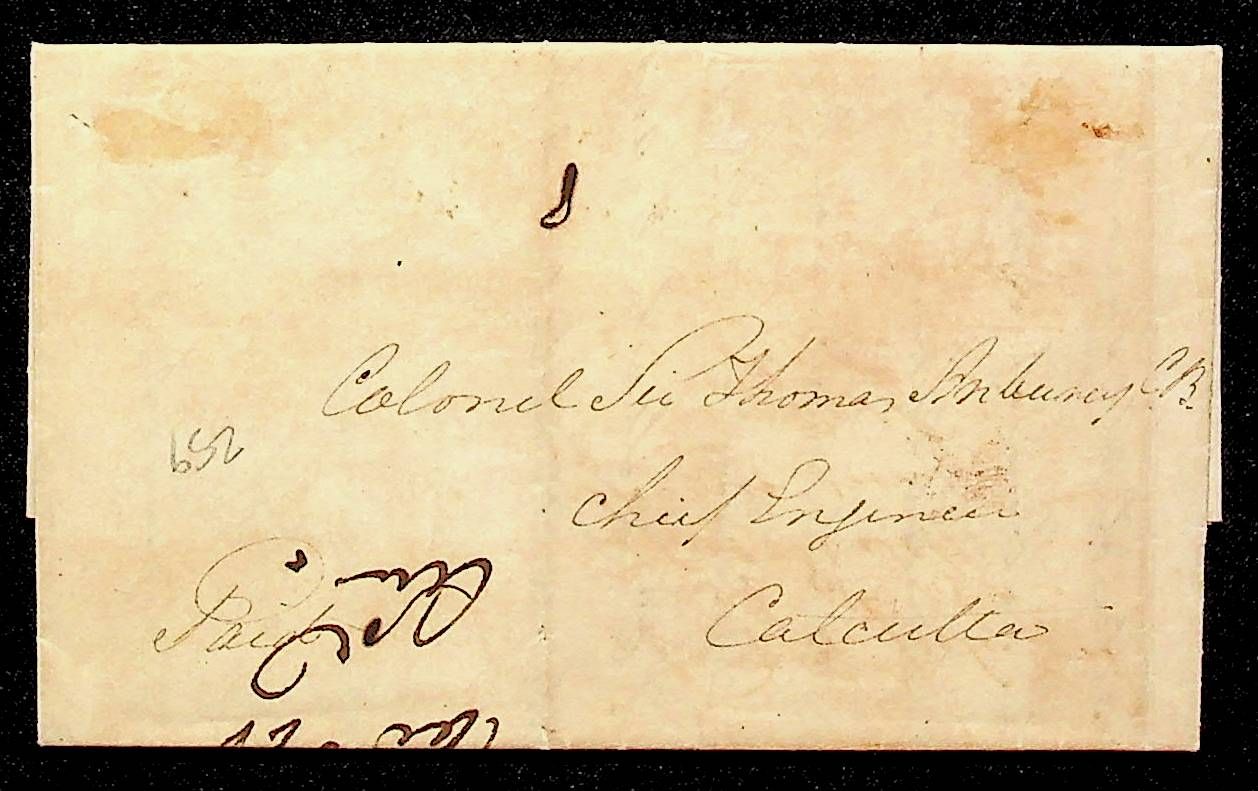 Colonel Sir Thomas Anburey CB.
Chief Engineer
Calcutta
Paid